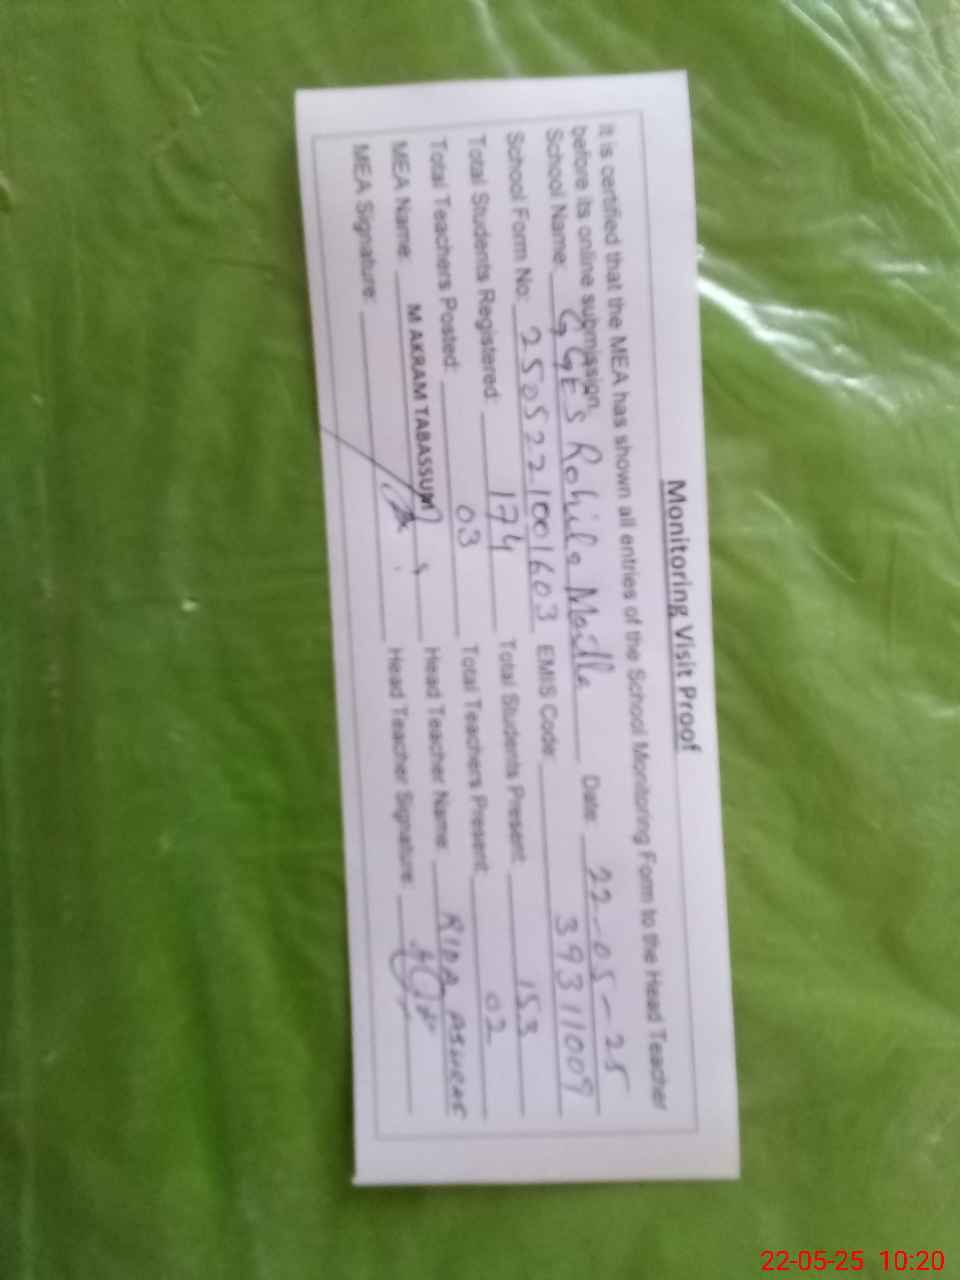 Monitoring Visit Proof
It is certified that the MEA has shown all entries of the School Monitoring Form to the Head Teacher
before its online submission.
School Name: GGES Rohila Date: 22-05-25
School Form No: 2505221001603 EMIS Code: 39311009
Total Students Registered: 174 Total Students Present: 153
Total Teachers Posted: 03 Total Teachers Present: 02
MEA Name: M AKRAM TABASSUM Head Teacher Name: RIDA ASHRAF
MEA Signature: Head Teacher Signature:
22-05-25 10:20